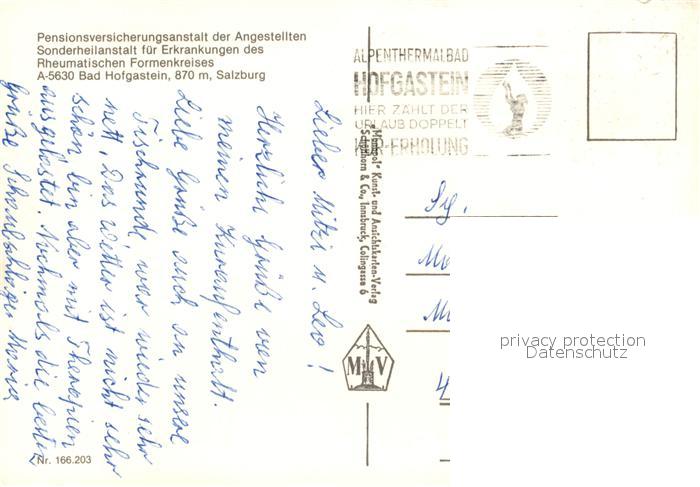 Pensionsversicherungsanstalt der Angestellten
Sonderheilanstalt für Erkrankungen des
Rheumatischen Formenkreises
A-5630 Bad Hofgastein, 870 m, Salzburg
ALPENTHERMALBAD
HOFGASTEIN
HIER ZÄHLT DER
URLAUB DOPPELT
KUR-ERHOLUNG
Lieber Mitzi u. Leo!
Herzliche Grüße von
meinen Kuraufenthalt.
Liebe Grüße auch an unsere
Tischrunde, war wieder sehr
nett. Das Wetter ist nicht sehr
schön bin aber mit Therapien
ausgelastet. Nochmals die besten
Grüße Maria
"Mundpol" Kunst- und Ansichtskarten-Verlag
Schöllhorn & Co., Innsbruck, Colingasse 6
M V
privacy protection
Datenschutz
Nr. 166.203